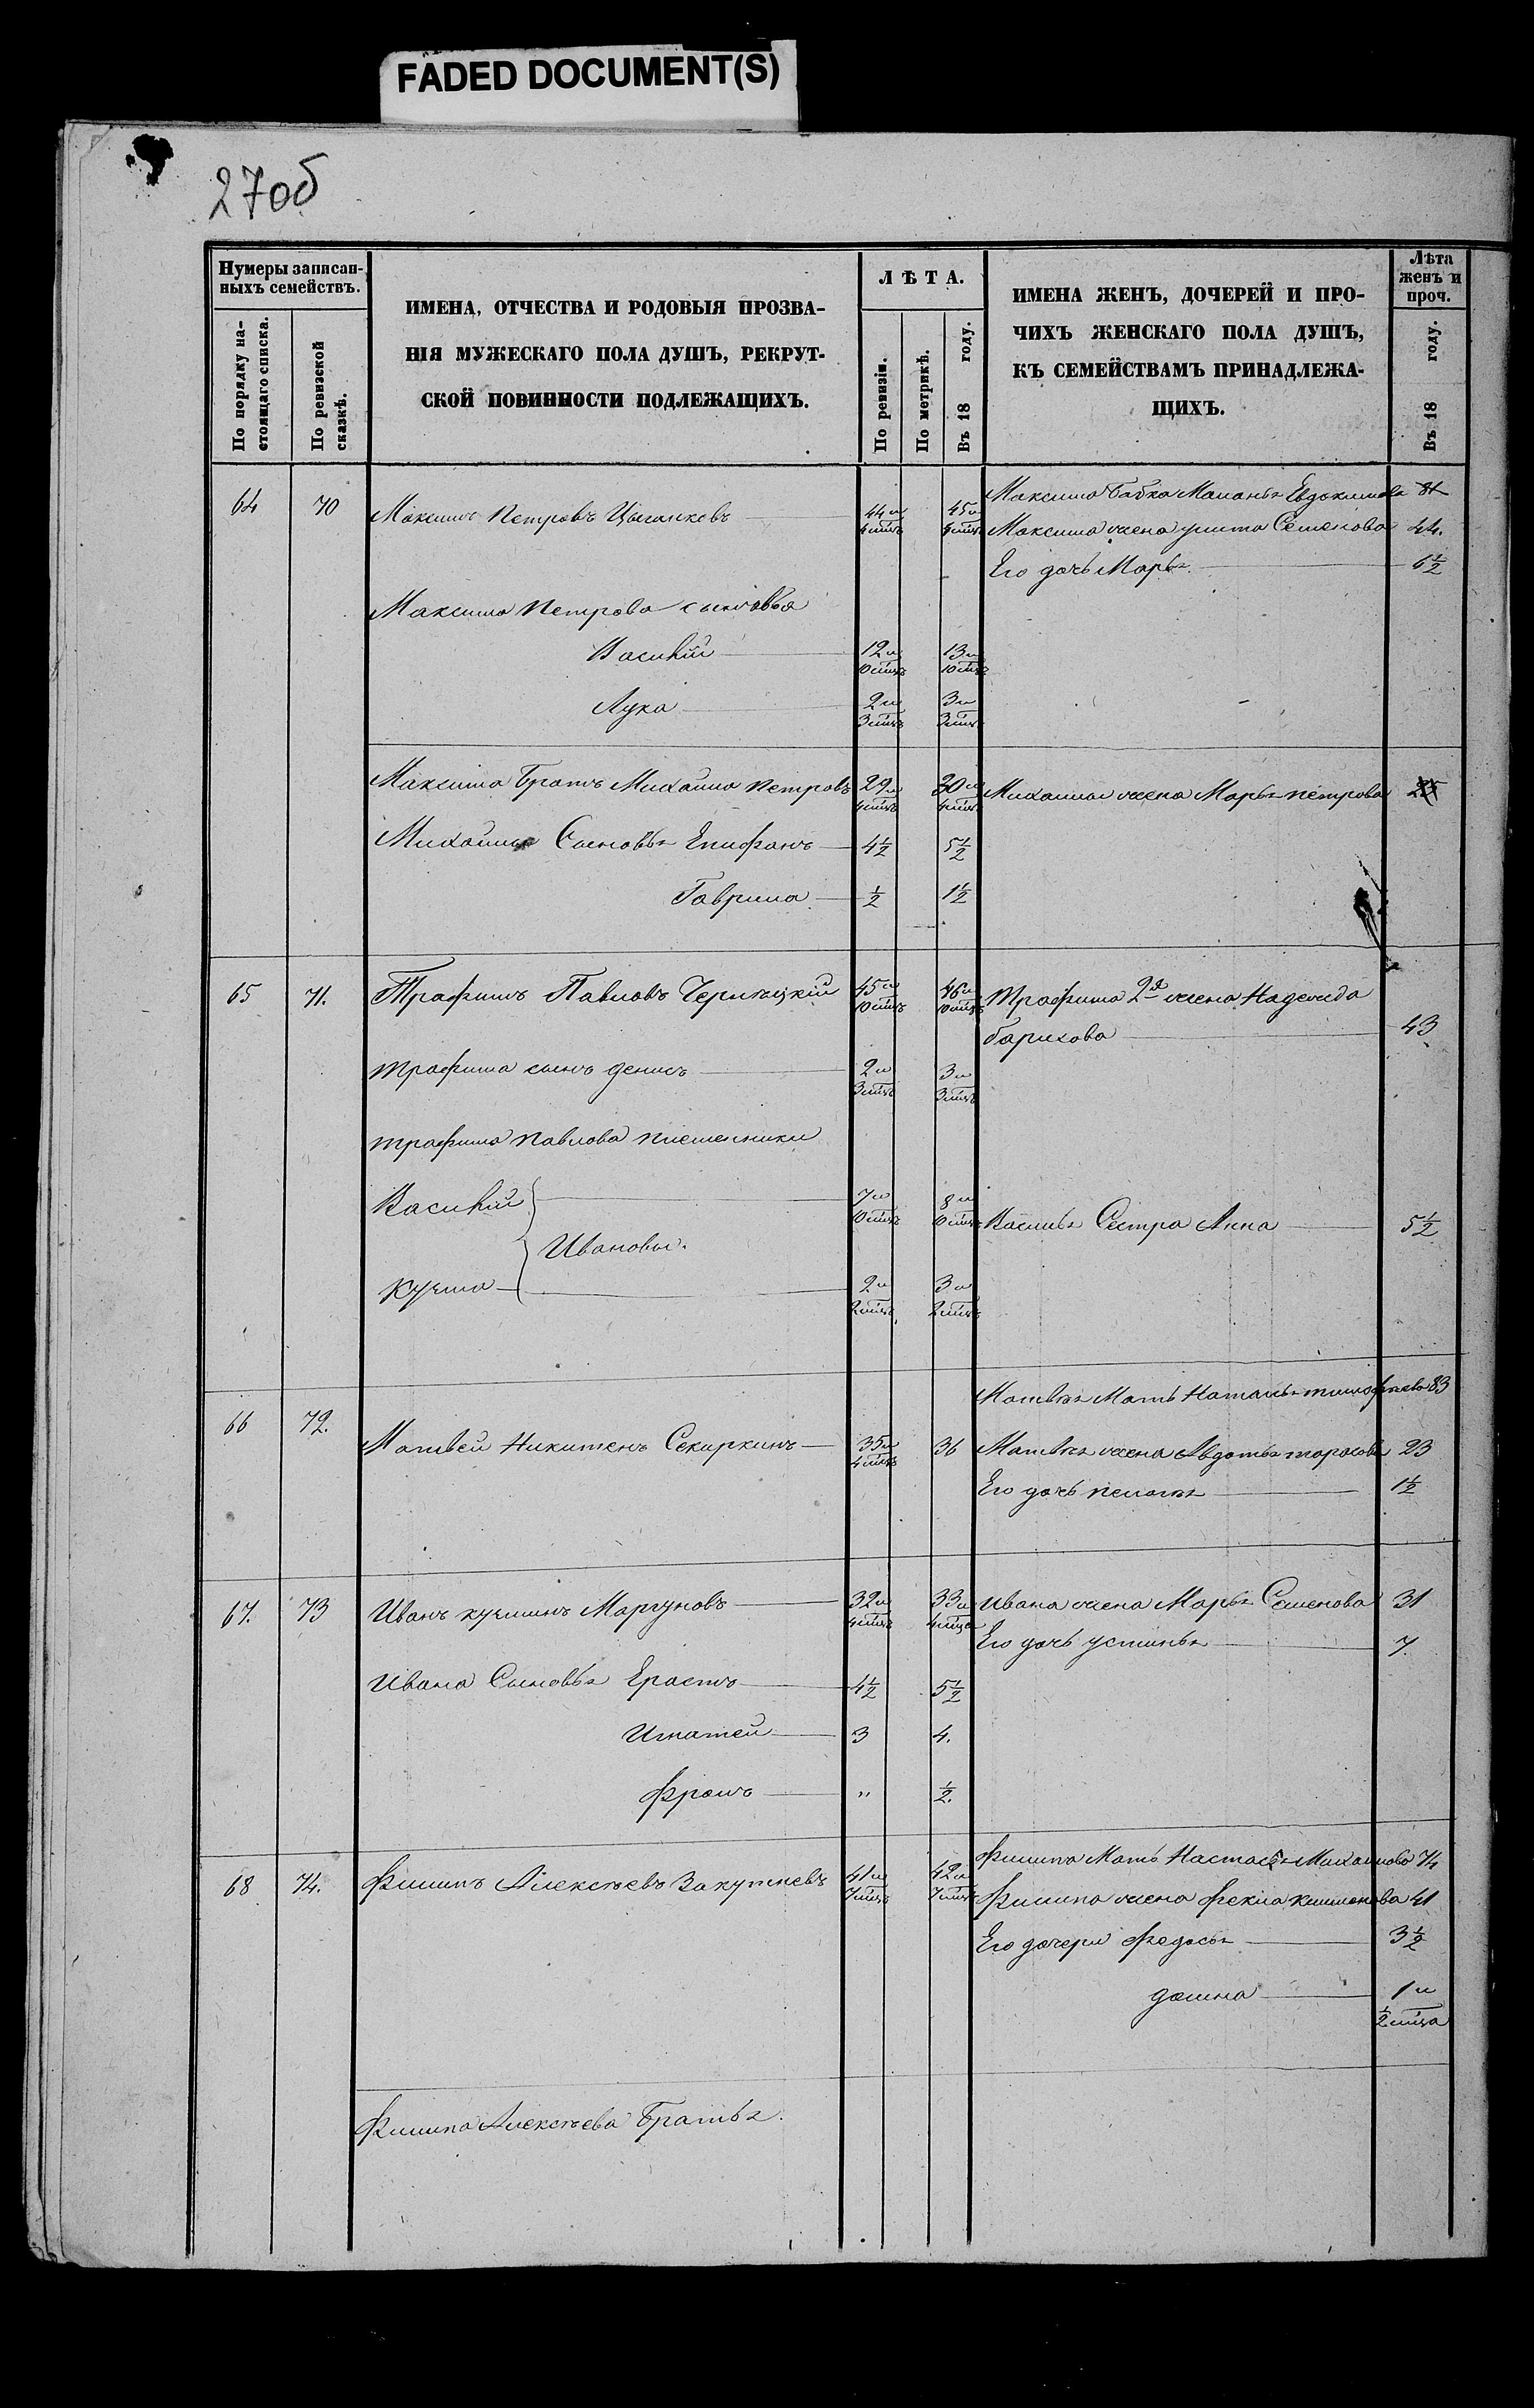 FADED DOCUMENT(S)
27об
Нумеры записан-
ныхъ семействъ.
По порядку на-
стоящаго списка.
По ревизской
сказкѣ.
ИМЕНА, ОТЧЕСТВА И РОДОВЫЯ ПРОЗВА-
НІЯ МУЖЕСКАГО ПОЛА ДУШЪ, РЕКРУТ-
СКОЙ ПОВИННОСТИ ПОДЛЕЖАЩИХЪ.
ЛѢТА.
По ревизіи.
По метрикѣ.
Въ 18 году.
ИМЕНА ЖЕНЪ, ДОЧЕРЕЙ И ПРО-
ЧИХЪ ЖЕНСКАГО ПОЛА ДУШЪ,
КЪ СЕМЕЙСТВАМЪ ПРИНАДЛЕЖА-
ЩИХЪ.
Лѣта
женъ и
проч.
Въ 18 году.
Максима бабка Маланья Евдокимова 81
64 70 Максимъ Петровъ Цыганковъ 44 и 4 мцъ 45 и 4 мцъ Максима жена Семенова 44.
Его дочь Марья 6½
Максима Петрова сыновья
Василій 12 и 10 мцъ 13 и 10 мцъ
Лука 2 и 3 мцъ 3 и 3 мцъ
Максима братъ Михайла Петровъ 29 и 4 мцъ 30 и 4 мцъ Михайлы жена Марья Петрова 25
Михайлы Сыновья Епифанъ 4½ 5½
Гаврила ½ 1½
65 71. Трафимъ Павловъ 45 и 10 мцъ 46 и 10 мцъ Трафима 2я жена Надежда
барисова 43
Трафима сынъ денисъ 2 и 3 мцъ 3 и 3 мцъ
Трафима Павлова племенники
Василій 7 и 10 мцъ 8 и 10 мцъ Василья Сестра Анна 5½
Ивановы.
Кузма 2 и 2 мцъ 3 и 2 мцъ
Матвѣя Мать Наталья тимофѣева 83
66 72. Матвей Никитенъ Секиркинъ 35 и 4 мцъ 36 Матвѣя жена Авдотья тарасова 23
Его дочь пелагѣя 1½
67. 73 Иванъ кузминъ Маргуновъ 32 и 4 мцъ 33 и 4 мца Ивана жена Марья Семенова 31
Его дочь устинья 7.
Ивана Сыновья Ерастъ 4½ 5½
Игнатей 3 4.
Фролъ " ½.
Филипа Мать Настасья Михайлова 74
68 74. Филипъ Алексѣевъ Закутневъ 41 и 7 мцъ 42 и 7 мцъ Филипа жена Фекла 41
Его дочери Федосья 3½
домна 1 и ½ мца
Филипа Алексѣева братья.